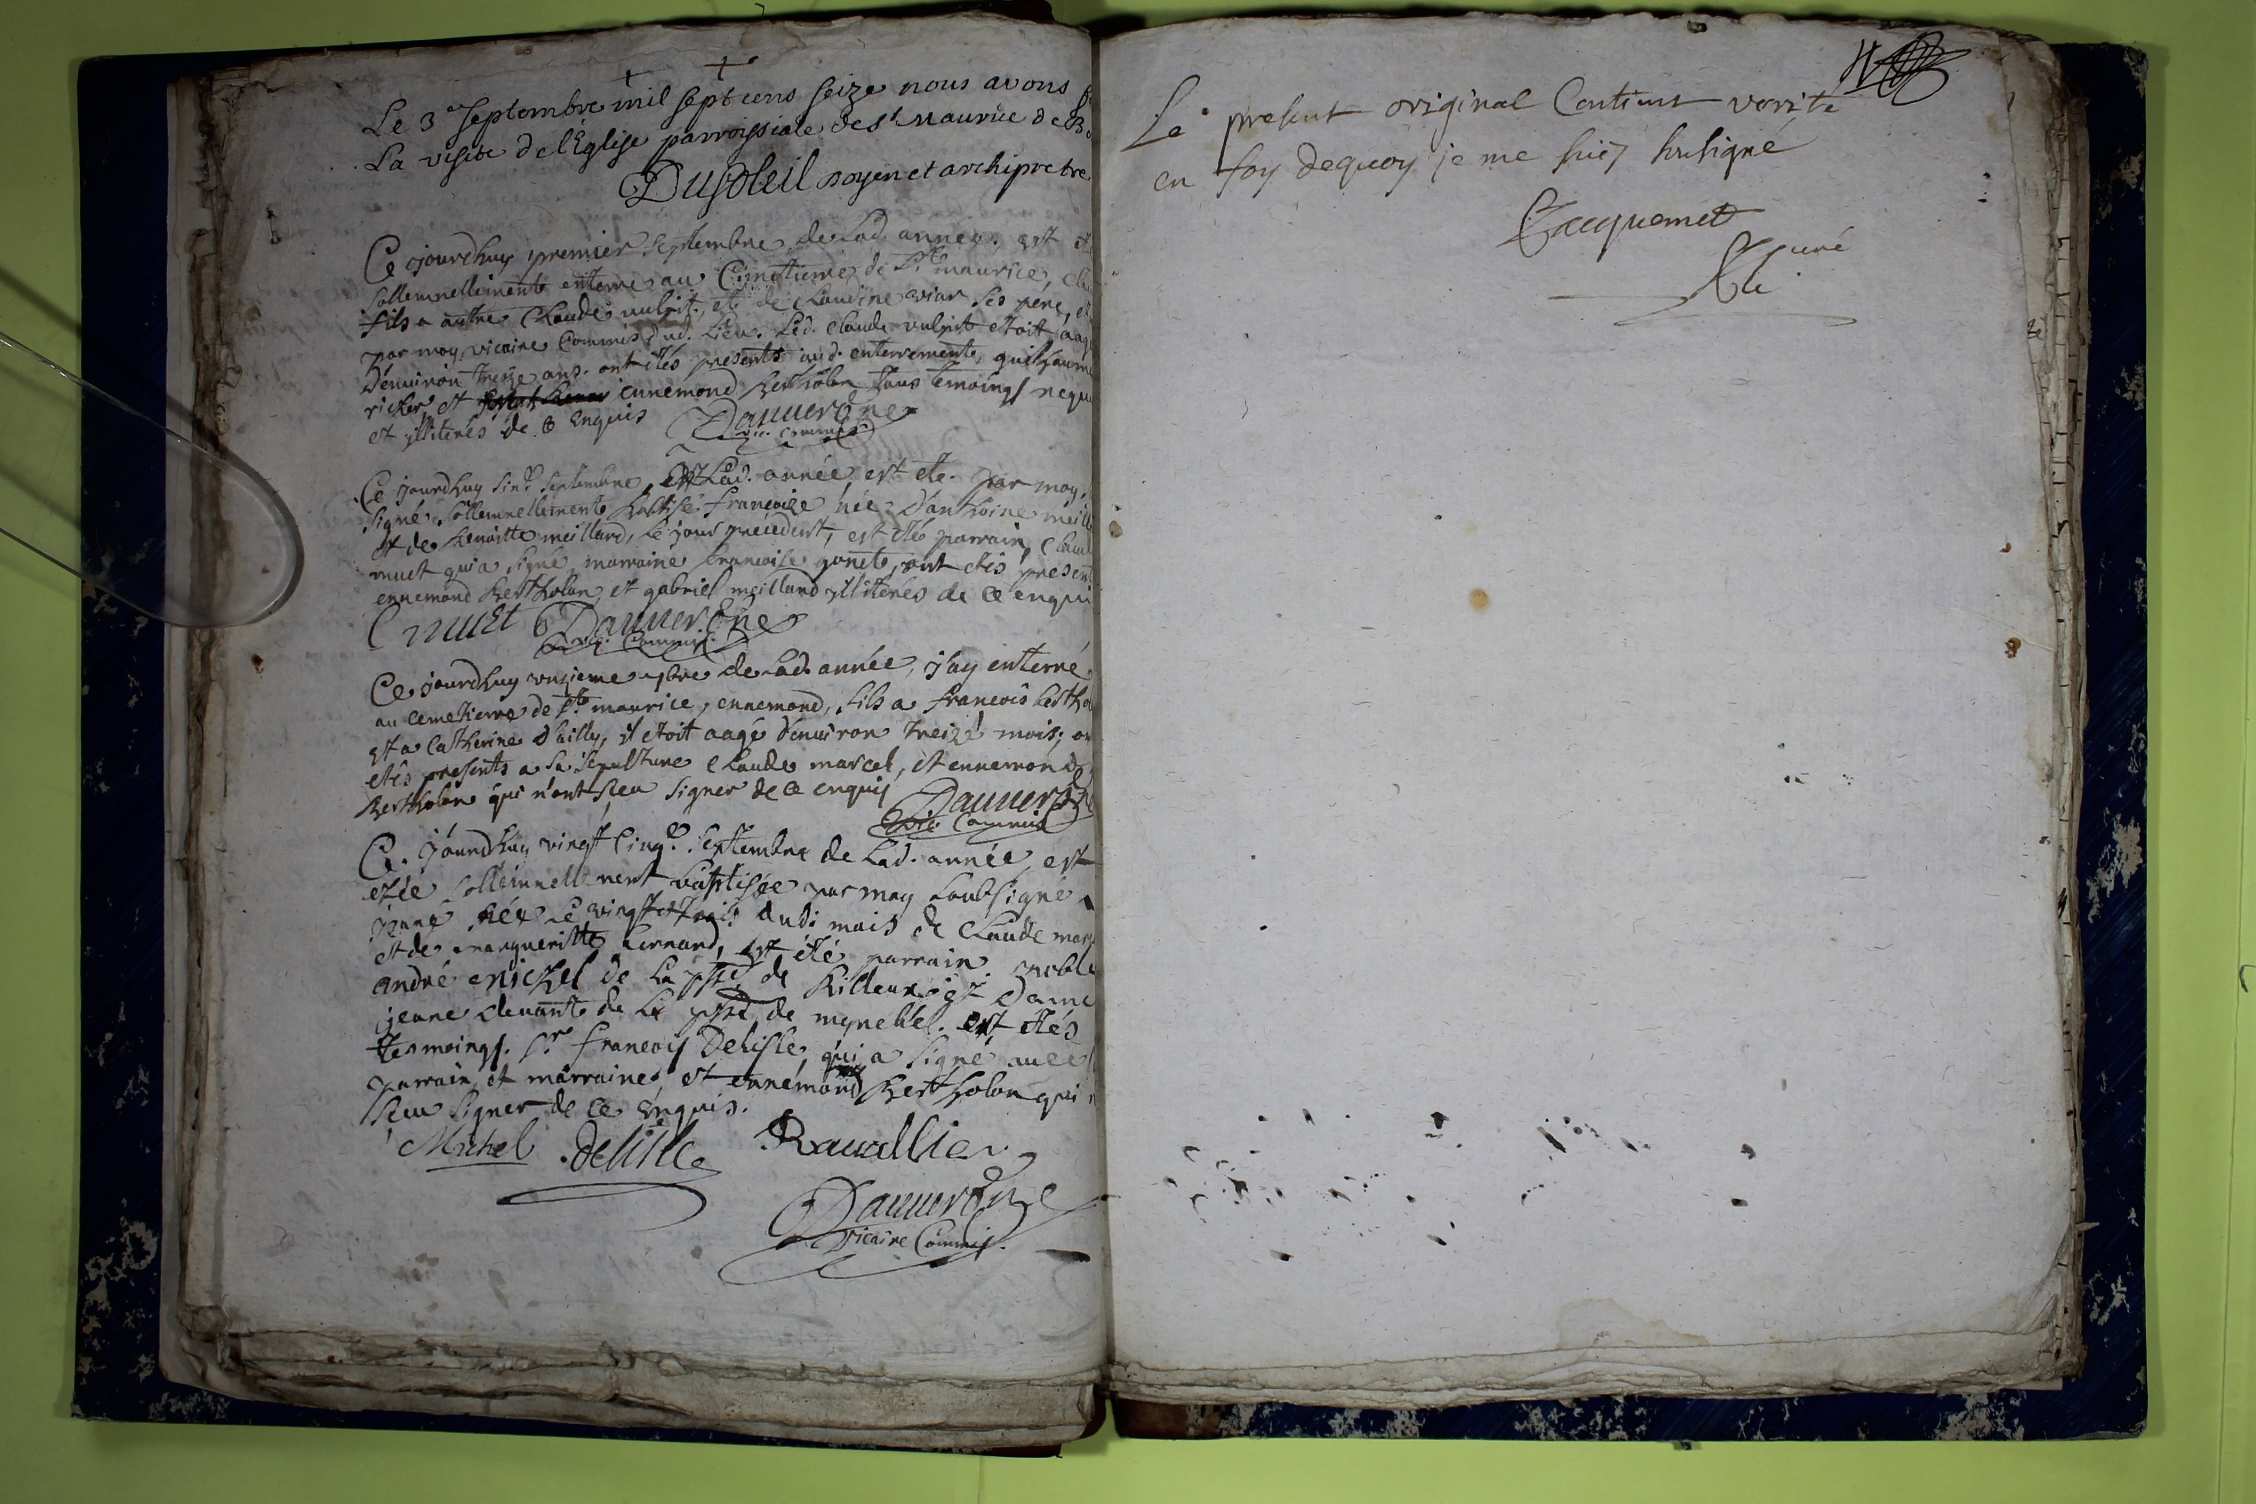 Le 3e septembre mil sept cens seize nous avons
La visite de l'Eglise parroissiale de st Maurice de
Dusoleil doyen et archipretre
Ce jourdhuy premier septembre de Lad. année. est
sollemnellement enterré au Cimetierre de St maurice,
fils a autre Claude vulpit, et de Claudine viar ses pere, et
par moy vicaire Commis dud. Lieu. Led. Claude vulpit etoit
d'enuiron treize ans. ont étés presents aud. enterrement, guilhaume
richer et ennemond bertholon tous temoings
et yllitérés de ce Enquis Dauuergne
vic. Commis
Ce jourdhuy septembre, Lad. année, est été par moy,
signé sollemnellement baptisé francoise née d'anthoine
et de benoitte meilland, Le jour précédent, est été parrain,
muet qui a signé, marraine francoise gonet, ont étés present
ennemond Bertholon, et gabriel meilland yllitérés de ce enqui
C muet Dauuergne
vic. Commis
Ce jourdhuy onzieme 7bre de Lad. année, j'ay enterré
au cemetierre de st maurice, ennemond, fils a francois
et a Catherine d'ailly, il etoit aagé d'enuiron treize mois,
étés presents a sa sepulture Claude marcel, et ennemond
Bertholon qui n'ont sceu signer de ce enquis Dauuergne
vic Commis
Ce. jourdhuy vingt Cinq.e septembre de Lad. année, est
etée sollemnellement baptisée par moy soubsigné
jeane née Le vingt et trois dudi mois de Claude
et de margueritte bernard, est été parrain noble
andré michel de La psse de et Dame
jeane de La psse de est étés
tesmoings. sr. francois Delisle, qui a signé auec
parrain, et marraine, et ennemond Bertholon qui
sceu signer de ce enquis.
Michel delille Rauallier
Dauuergne
vicaire Commis.
Le present original Contient verité
en foy dequoy je me suis sousigné
Jacquemet
Curé